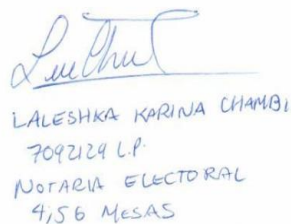 LALESHKA KARINA CHAMBI
7092129 L.P.
NOTARIA ELECTORAL
4,5 6 MESAS